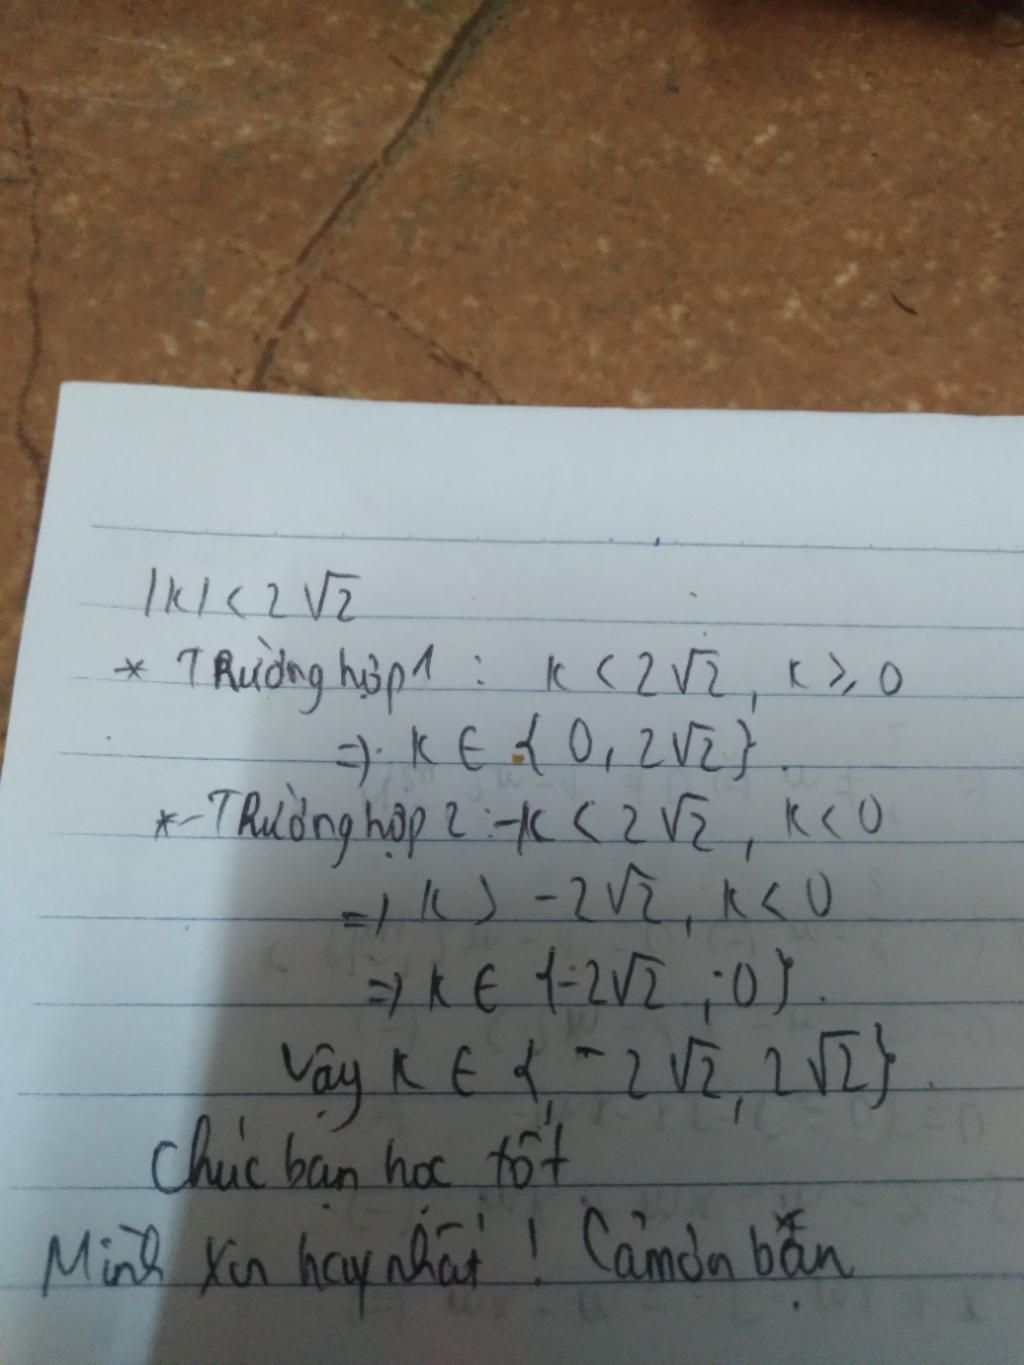 |k| < 2√2
* Trường hợp 1 : k < 2√2, k ≥ 0
=> k ∈ { 0, 2√2}.
*- Trường hợp 2 : -k < 2√2, k < 0
=> k > -2√2, k < 0
=> k ∈ {-2√2 ; 0}.
Vậy k ∈ { -2√2, 2√2}.
Chúc bạn học tốt
Mình xin hay nhất ! Cảm ơn bạn